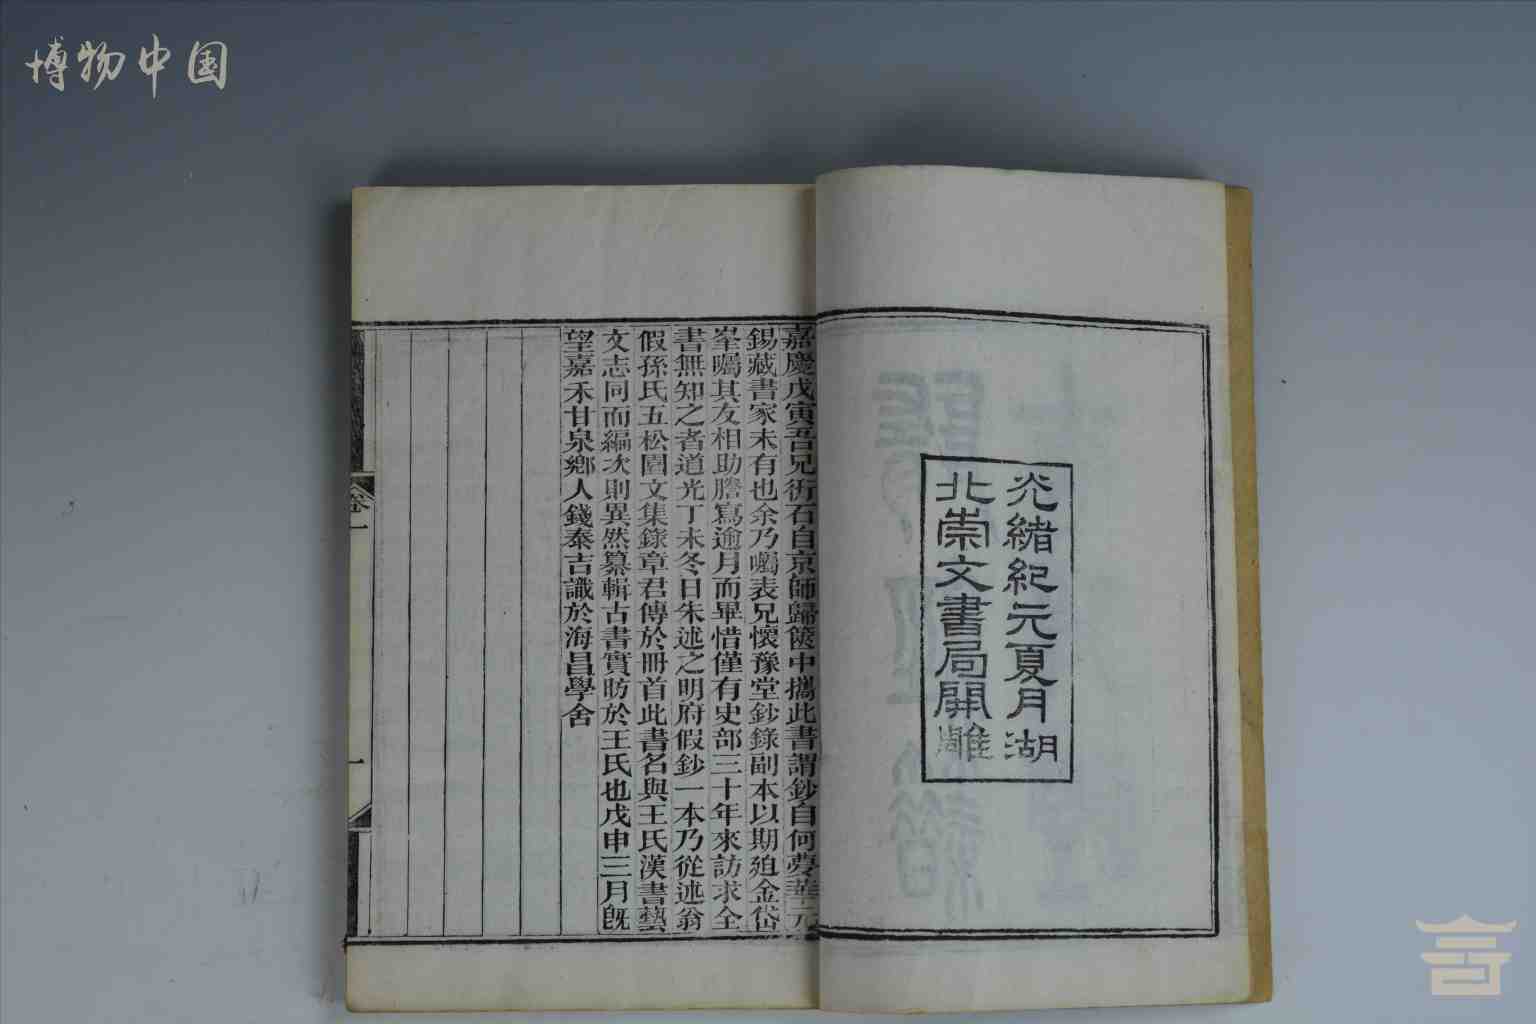 博物中国
光緒紀元夏月湖
北崇文書局開雕
嘉慶戊寅吾兄衎石自京師歸篋中攜此書謂鈔自何夢華元
錫藏書家未有也余乃囑表兄懷豫堂鈔錄副本以期迫金岱
峯囑其友相助謄寫逾月而畢惜僅有史部三十年來訪求全
書無知之者道光丁未冬日朱述之明府假鈔一本乃從述翁
假孫氏五松園文集錄章君傳於冊首此書名與王氏漢書藝
文志同而編次則異然纂輯古書實昉於王氏也戊申三月旣
望嘉禾甘泉鄉人錢泰吉識於海昌學舍
卷一
一